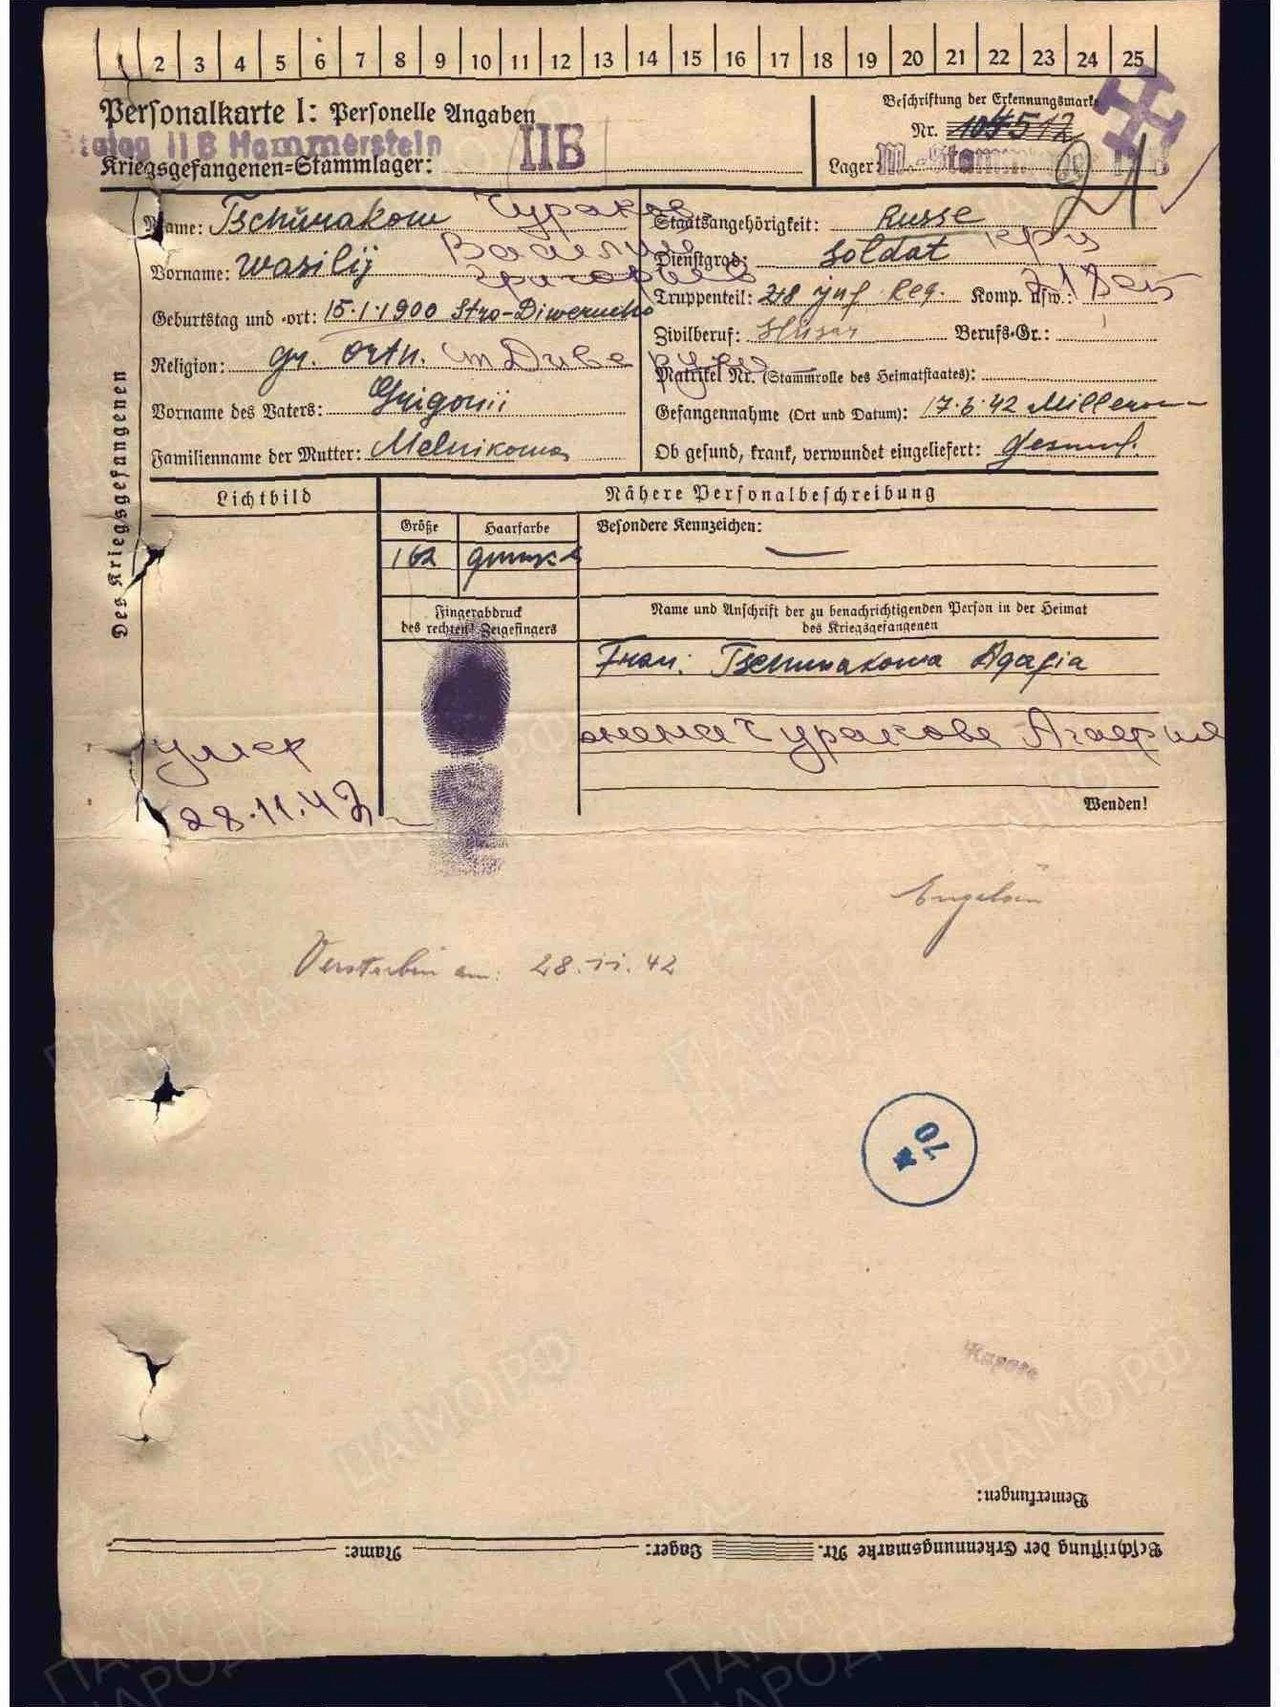 1 2 3 4 5 6 7 8 9 10 11 12 13 14 15 16 17 18 19 20 21 22 23 24 25
Personalkarte I: Personelle Angaben
Beschriftung der Erkennungsmarke
Stalag II B Hammerstein
IIB
Nr. 104512
Kriegsgefangenen-Stammlager:
Lager: M.-Stammlager II B
Des Kriegsgefangenen
Name: Tschurakow Чураков
Vorname: Wasilij Василий
Григорьев
Geburtstag und -ort: 15.1.1900
Religion: gr. orth.
Vorname des Vaters: Grigorii
Familienname der Mutter: Melnikowa
Staatsangehörigkeit: Russe
Dienstgrad: Soldat
Truppenteil: 248 inf. Reg. Komp. usw.:
Zivilberuf: Berufs-Gr.:
Matrikel Nr. (Stammrolle des Heimatstaates):
Gefangennahme (Ort und Datum): 17.6.42 Millerowo
Ob gesund, krank, verwundet eingeliefert: Gesund.
Lichtbild
Nähere Personalbeschreibung
Größe
Haarfarbe
Besondere Kennzeichen:
162
Fingerabdruck
des rechten Zeigefingers
Name und Anschrift der zu benachrichtigenden Person in der Heimat
des Kriegsgefangenen
Frau: Tschurakowa Agafia
жена Чуракова Агафия
умер
28.11.42
Wenden!
Verstorben am: 28.11.42
70
Bemerkungen:
Beschriftung der Erkennungsmarke Nr. Lager: Name:
ПАМЯТЬ НАРОДА
ЦАМО.РФ